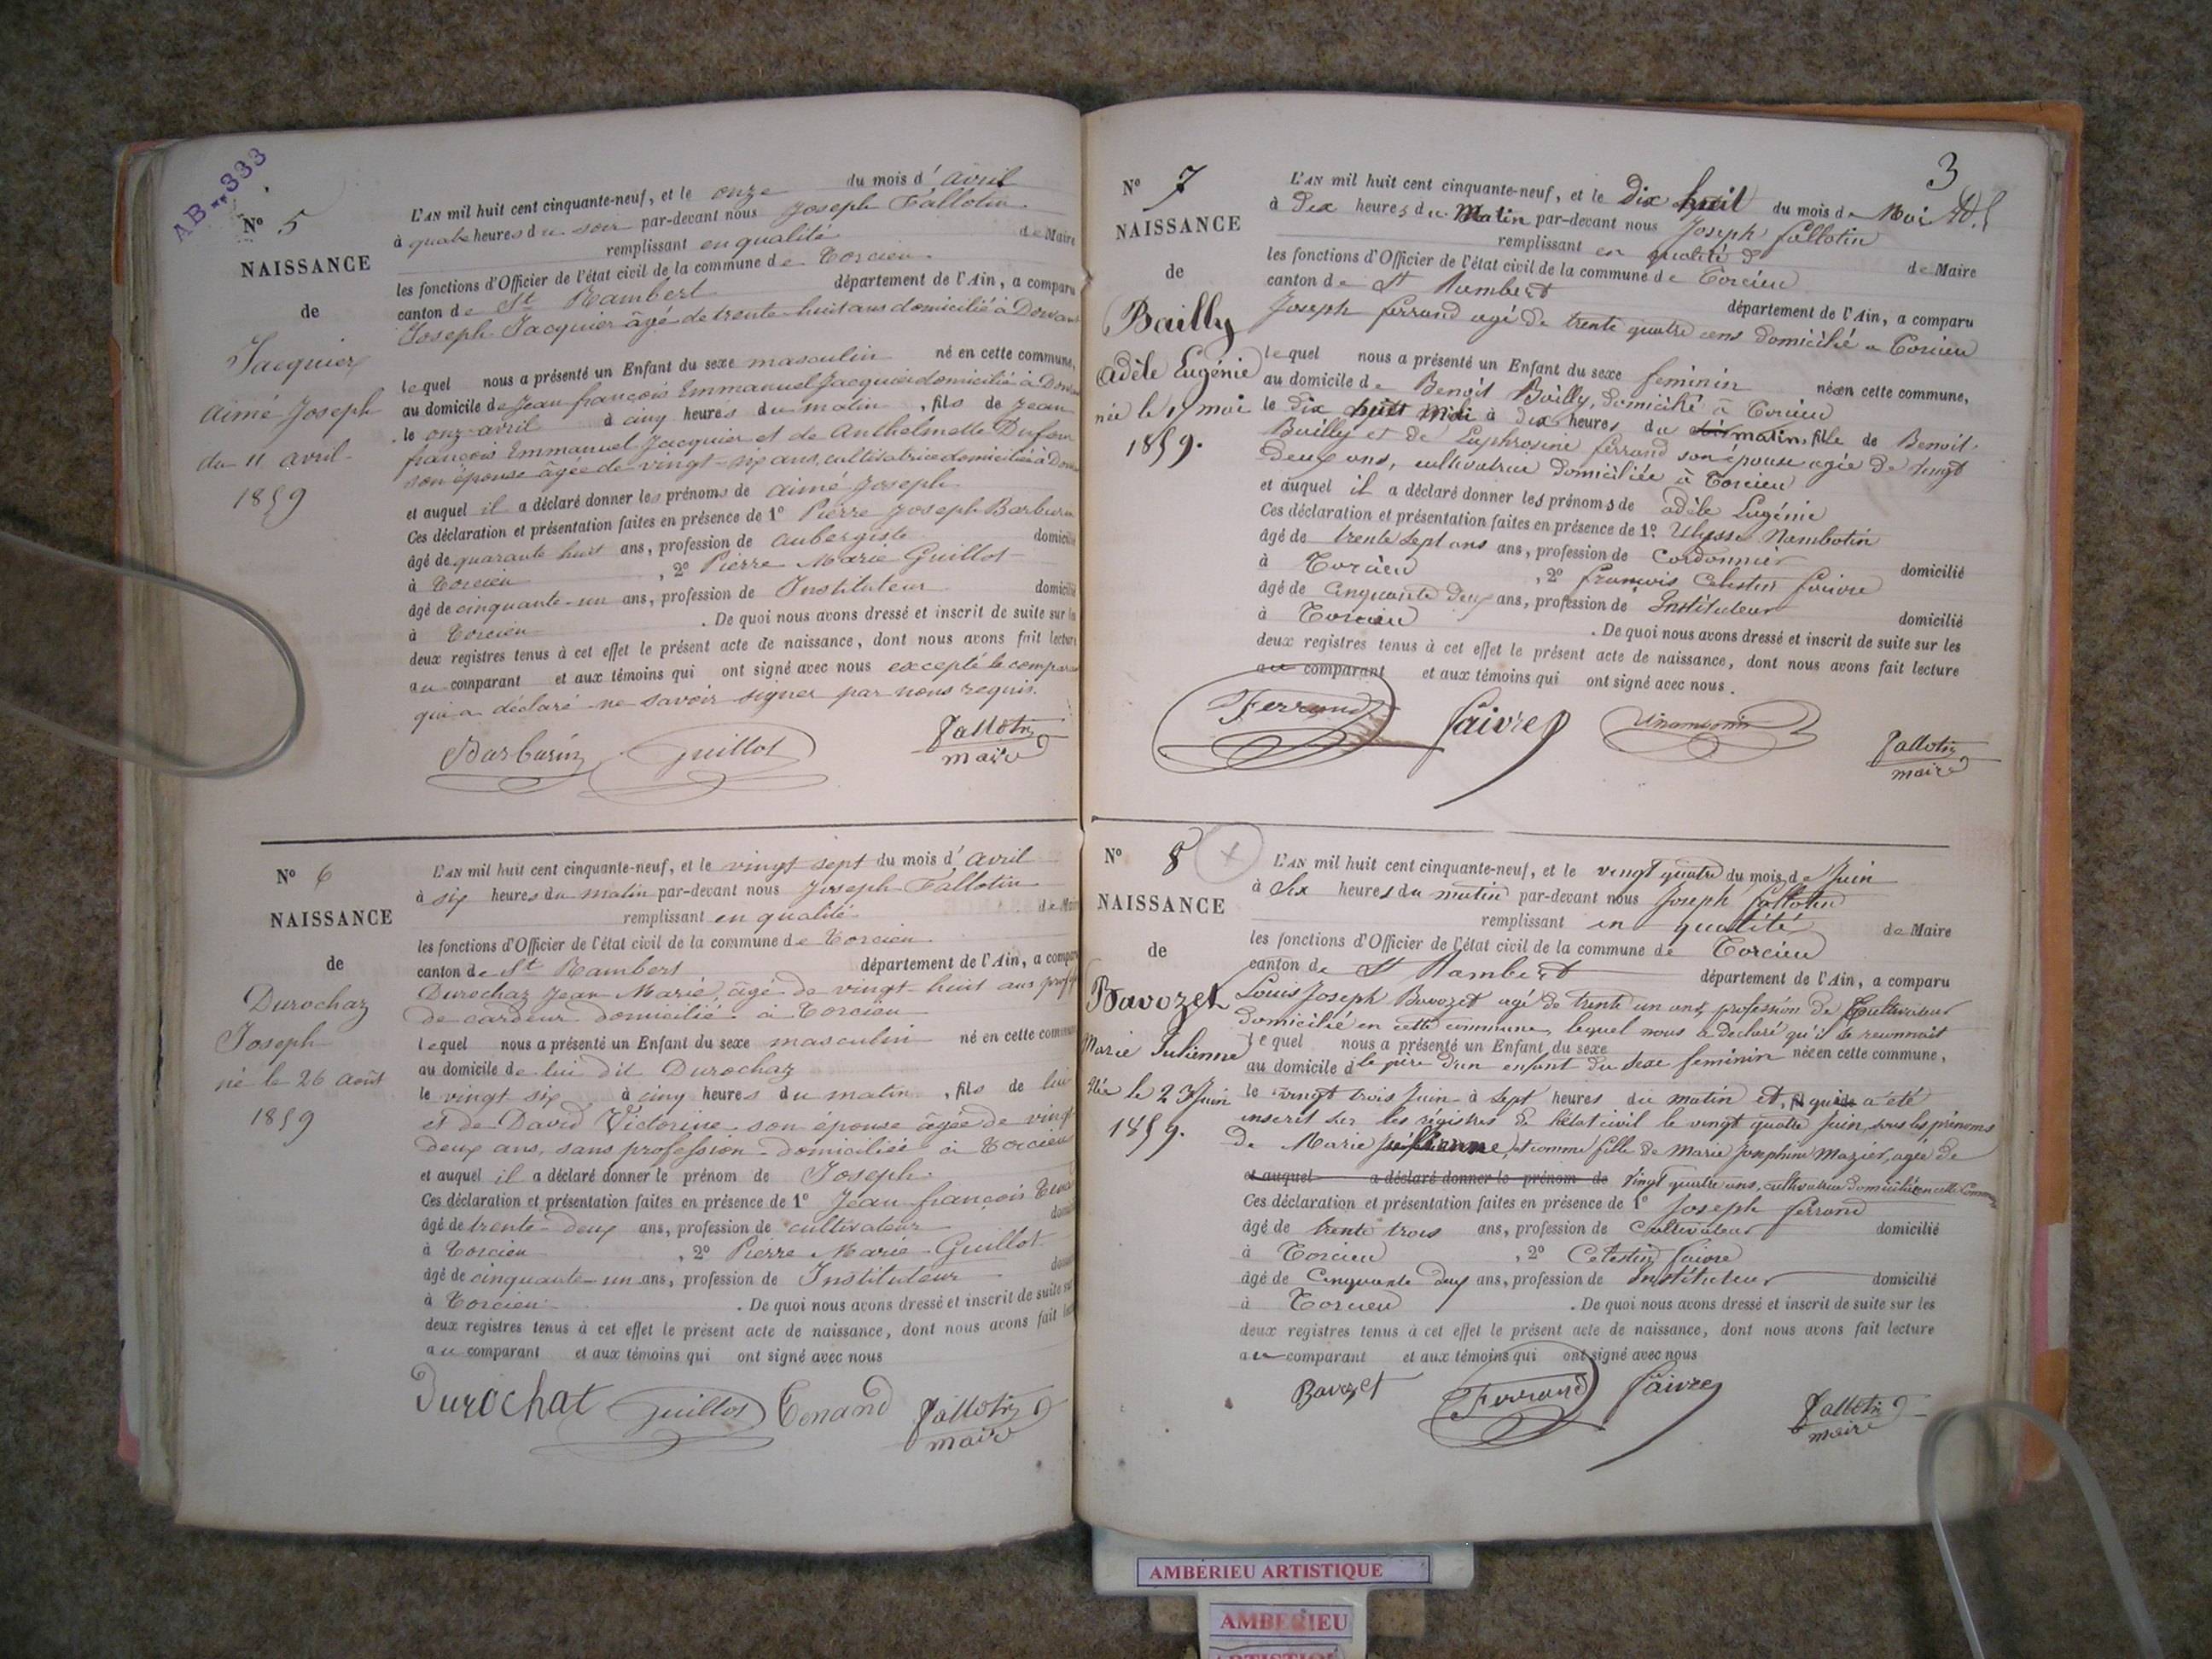 AB..333
Nº 5
NAISSANCE
de
Jacquier
Aimé Joseph
du 11 avril
1859
L'AN mil huit cent cinquante-neuf, et le onze du mois d'avril
à quatre heures du soir par-devant nous Joseph Fallotin
remplissant en qualité de Maire
les fonctions d'Officier de l'état civil de la commune de Torcieu
canton de St Rambert département de l'Ain, a comparu
Joseph Jacquier âgé de trente-huit ans domicilié à
lequel nous a présenté un Enfant du sexe masculin né en cette commune,
au domicile de Jean françois Emmanuel Jacquier domicilié à
le onze avril à cinq heures du matin, fils de Jean
françois Emmanuel Jacquier et de Anthelmette
son épouse âgée de vingt-six ans, cultivatrice domiciliée à
et auquel il a déclaré donner les prénoms de aimé Joseph
Ces déclaration et présentation faites en présence de 1º Pierre Joseph Barbarin
âgé de quarante huit ans, profession de aubergiste domicilié
à Torcieu, 2º Pierre Marie Guillot
âgé de cinquante-un ans, profession de Instituteur domicilié
à Torcieu. De quoi nous avons dressé et inscrit de suite sur les
deux registres tenus à cet effet le présent acte de naissance, dont nous avons fait lecture
au comparant et aux témoins qui ont signé avec nous excepté le comparant
qui a déclaré ne savoir signer par nous requis.
Barbarin Guillot Fallotin
maire
Nº 6
NAISSANCE
de
Durochaz
Joseph
né le 26 août
1859
L'AN mil huit cent cinquante-neuf, et le vingt sept du mois d'avril
à six heures du matin par-devant nous Joseph Fallotin
remplissant en qualité de Maire
les fonctions d'Officier de l'état civil de la commune de Torcieu
canton de St Rambert département de l'Ain, a comparu
Durochaz Jean Marie, âgé de vingt-huit ans prof
de cardeur domicilié à Torcieu
lequel nous a présenté un Enfant du sexe masculin né en cette commune
au domicile de lui dit Durochaz
le vingt six à cinq heures du matin, fils de lui
et de David Victorine son épouse âgée de vingt
deux ans, sans profession domiciliée à Torcieu
et auquel il a déclaré donner le prénom de Joseph
Ces déclaration et présentation faites en présence de 1º Jean françois
âgé de trente-deux ans, profession de cultivateur
à Torcieu, 2º Pierre Marie Guillot
âgé de cinquante-un ans, profession de Instituteur
à Torcieu. De quoi nous avons dressé et inscrit de suite sur
deux registres tenus à cet effet le présent acte de naissance, dont nous avons fait
au comparant et aux témoins qui ont signé avec nous
Durochat Guillot Tenand Fallotin
maire
3
Nº 7
NAISSANCE
de
Bailly
Adèle Eugénie
née le mai
1859.
L'AN mil huit cent cinquante-neuf, et le dix huit du mois de Mai
à dix heures du Matin par-devant nous Joseph fallotin
remplissant en qualité de Maire
les fonctions d'Officier de l'état civil de la commune de Torcieu
canton de St Rambert département de l'Ain, a comparu
Joseph ferrand agé de trente quatre ans domicilié à Torcieu
lequel nous a présenté un Enfant du sexe feminin née en cette commune,
au domicile de Benoit Bailly, domicilié à Torcieu
le dix à dix heures du matin, fille de Benoit
Bailly et de Euphrosine ferrand son épouse agée de vingt
deux ans, cultivatrice domiciliée à Torcieu
et auquel il a déclaré donner les prénoms de adèle Eugénie
Ces déclaration et présentation faites en présence de 1º. Ulysse
âgé de trente sept ans ans, profession de Cordonnier domicilié
à Torcieu, 2º françois Célestin faivre
âgé de Cinquante deux ans, profession de Instituteur domicilié
à Torcieu. De quoi nous avons dressé et inscrit de suite sur les
deux registres tenus à cet effet le présent acte de naissance, dont nous avons fait lecture
au comparant et aux témoins qui ont signé avec nous.
Ferrand faivre Fallotin
maire
Nº 8
NAISSANCE
de
Bavozet
Marie Julienne
Née le 23 Juin
1859.
L'AN mil huit cent cinquante-neuf, et le vingt quatre du mois de Juin
à Six heures du matin par-devant nous Joseph fallotin
remplissant en qualité de Maire
les fonctions d'Officier de l'état civil de la commune de Torcieu
canton de St Rambert département de l'Ain, a comparu
Louis Joseph Bavozet agé de trente un ans, profession de Cultivateur
domicilié en cette commune, lequel nous a déclaré qu'il se reconnait
lequel nous a présenté un Enfant du sexe née en cette commune,
au domicile d le père d'un enfant du sexe feminin
le vingt trois Juin à Sept heures du matin et, qui a été
inscrit sur les régistres de l'état civil le vingt quatre Juin, sous les prénoms
de Marie et comme fille de Marie Josephine Mazier, agée de
et auquel a déclaré donner le prénom de vingt quatre ans, cultivatrice domiciliée en cette Commune
Ces déclaration et présentation faites en présence de 1º Joseph ferrand
âgé de trente trois ans, profession de Cultivateur domicilié
à Torcieu, 2º Célestin faivre
âgé de Cinquante deux ans, profession de Instituteur domicilié
à Torcieu. De quoi nous avons dressé et inscrit de suite sur les
deux registres tenus à cet effet le présent acte de naissance, dont nous avons fait lecture
au comparant et aux témoins qui ont signé avec nous
Bavozet Ferrand faivre Fallotin
maire
AMBÉRIEU ARTISTIQUE
AMBÉRIEU
ARTISTIQUE